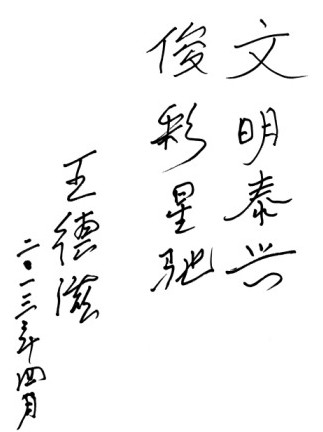 文明泰兴
俊彩星驰
王德滋
二〇一三年四月